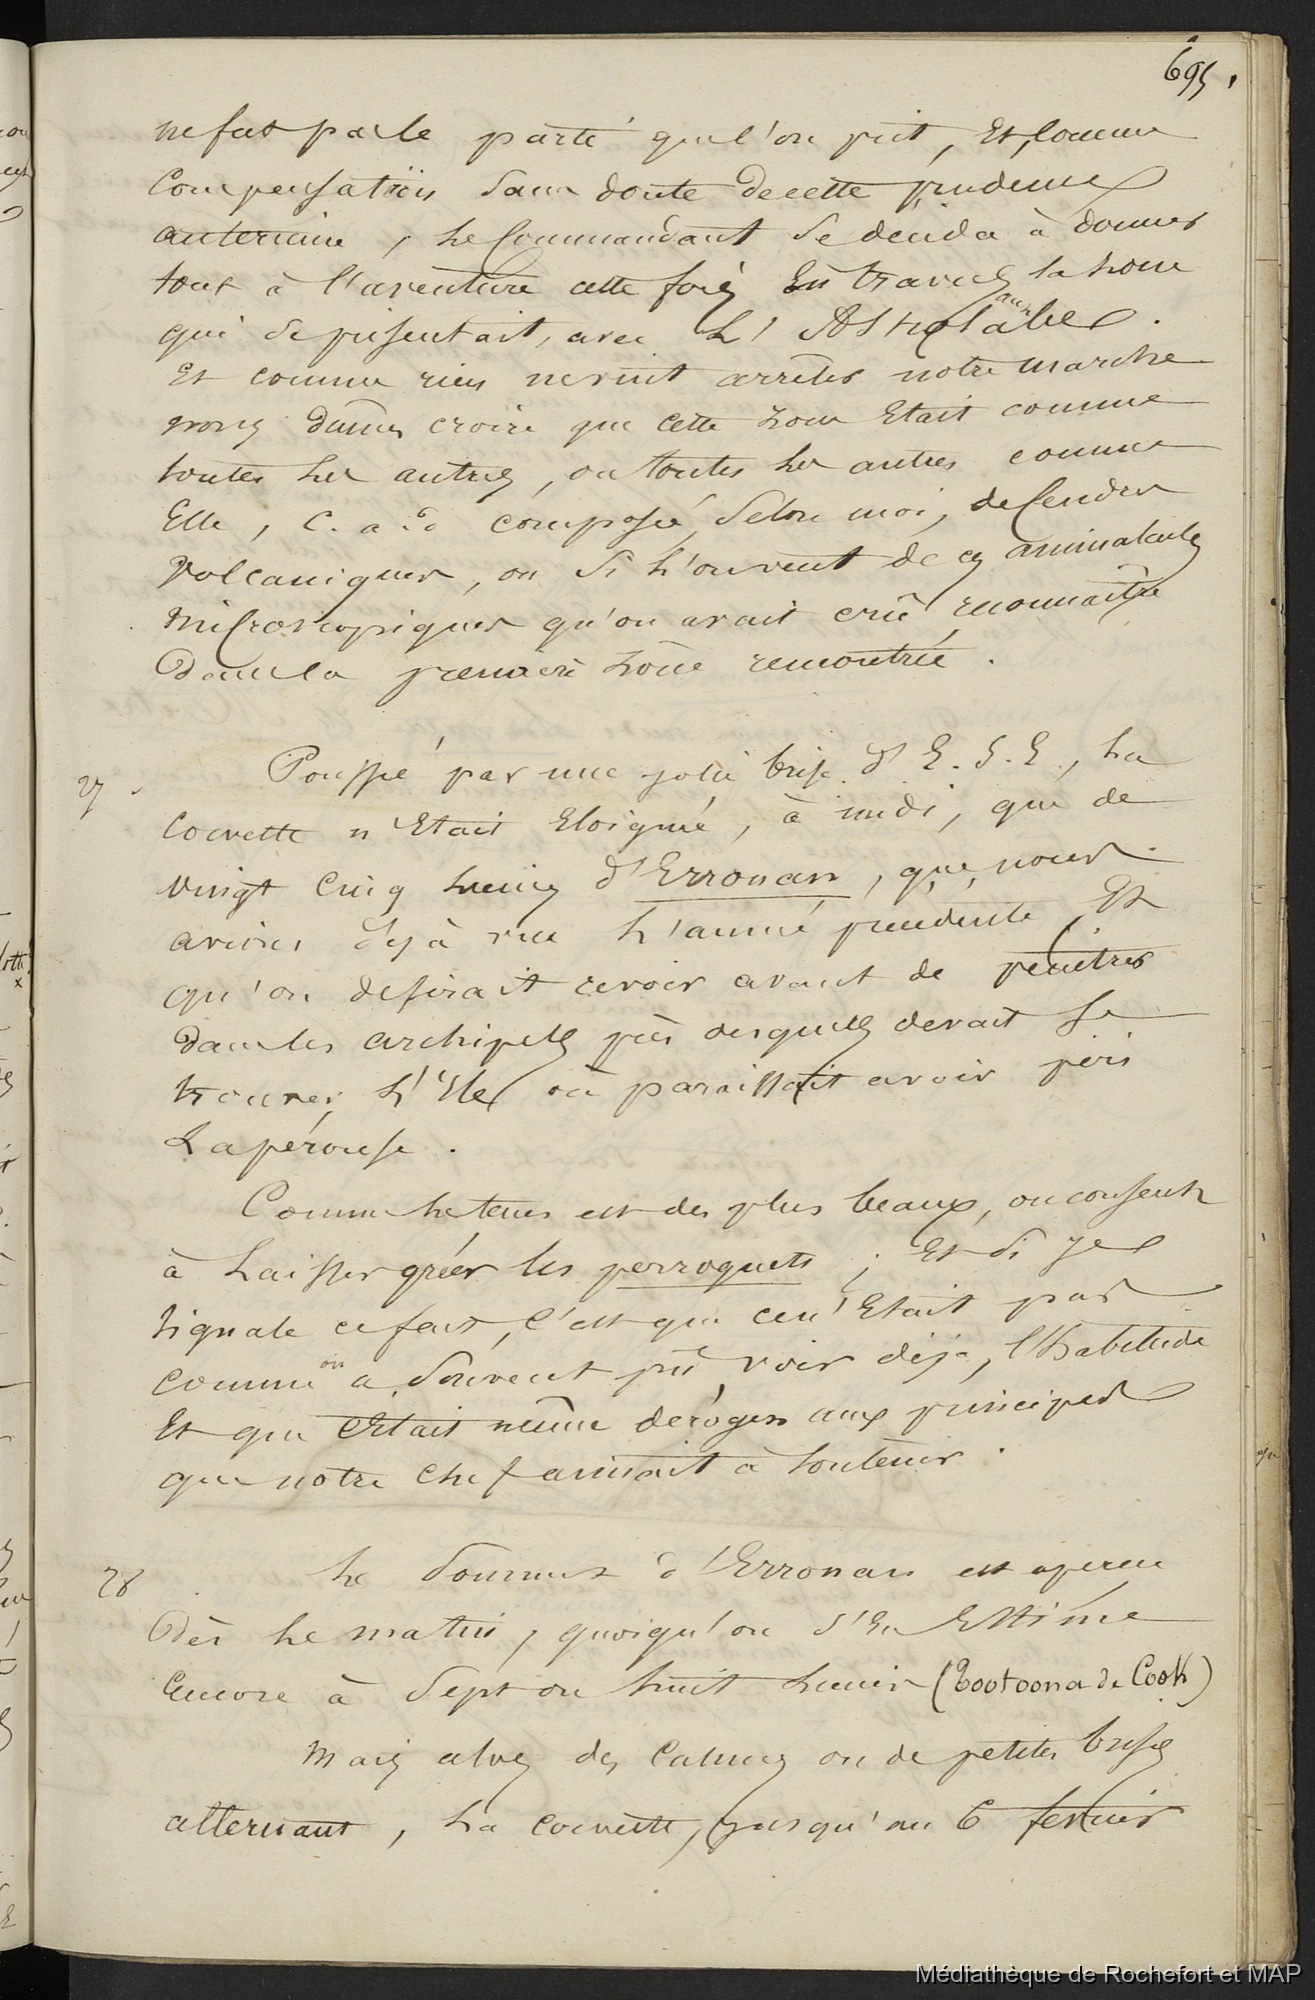 695.
ne fut pas le parti que l'on prit, Et, comme
Compensation sans doute de cette prudence
anterieure, le Commandant se décida à donner
tout à l'aventure cette fois En travers la zone
qui se présentait, avec L'Astrolabe.
Et comme rien ne vint arrêter notre marche
nous dûmes croire que cette zone Etait comme
toutes les autres, ou toutes les autres comme
Elle, C. a d. composée, Selon moi, de Cendres
Volcaniques, ou Si l'on veut de ces animalcules
Microscopiques qu'on avait crû reconnaître
Dans la première zône rencontrée.
27
Poussée par une jolie brise d'E. S. E., La
Corvette n'Etait Eloignée, à midi, que de
vingt Cinq lieues d'Erronan, que nous
avions déjà vue l'année précédente, Et
qu'on desirait revoir avant de pénétrer
dans les archipels près desquels devait Se
trouver L'Ile où paraissait avoir péri
Lapérouse.
Comme le tems est des plus beaux, on consent
à Laisser gréer les perroquets ; Et Si je
Signale ce fait, C'est que ce n'Etait pas
comme on a Souvent pû voir déjà, l'habitude
Et que C'Etait même deroger aux principes
que notre Chef aimait à Soutenir.
28
Le Sommet d'Erronan est aperçu
Dès le matin, quoiqu'on S'En Estime
Encore à Sept ou huit Lieues (Footoona de Cook)
Mais avec des Calmes ou de petites brises
alternant, La Corvette, jusqu'au 6 fevrier
Médiathèque de Rochefort et MAP